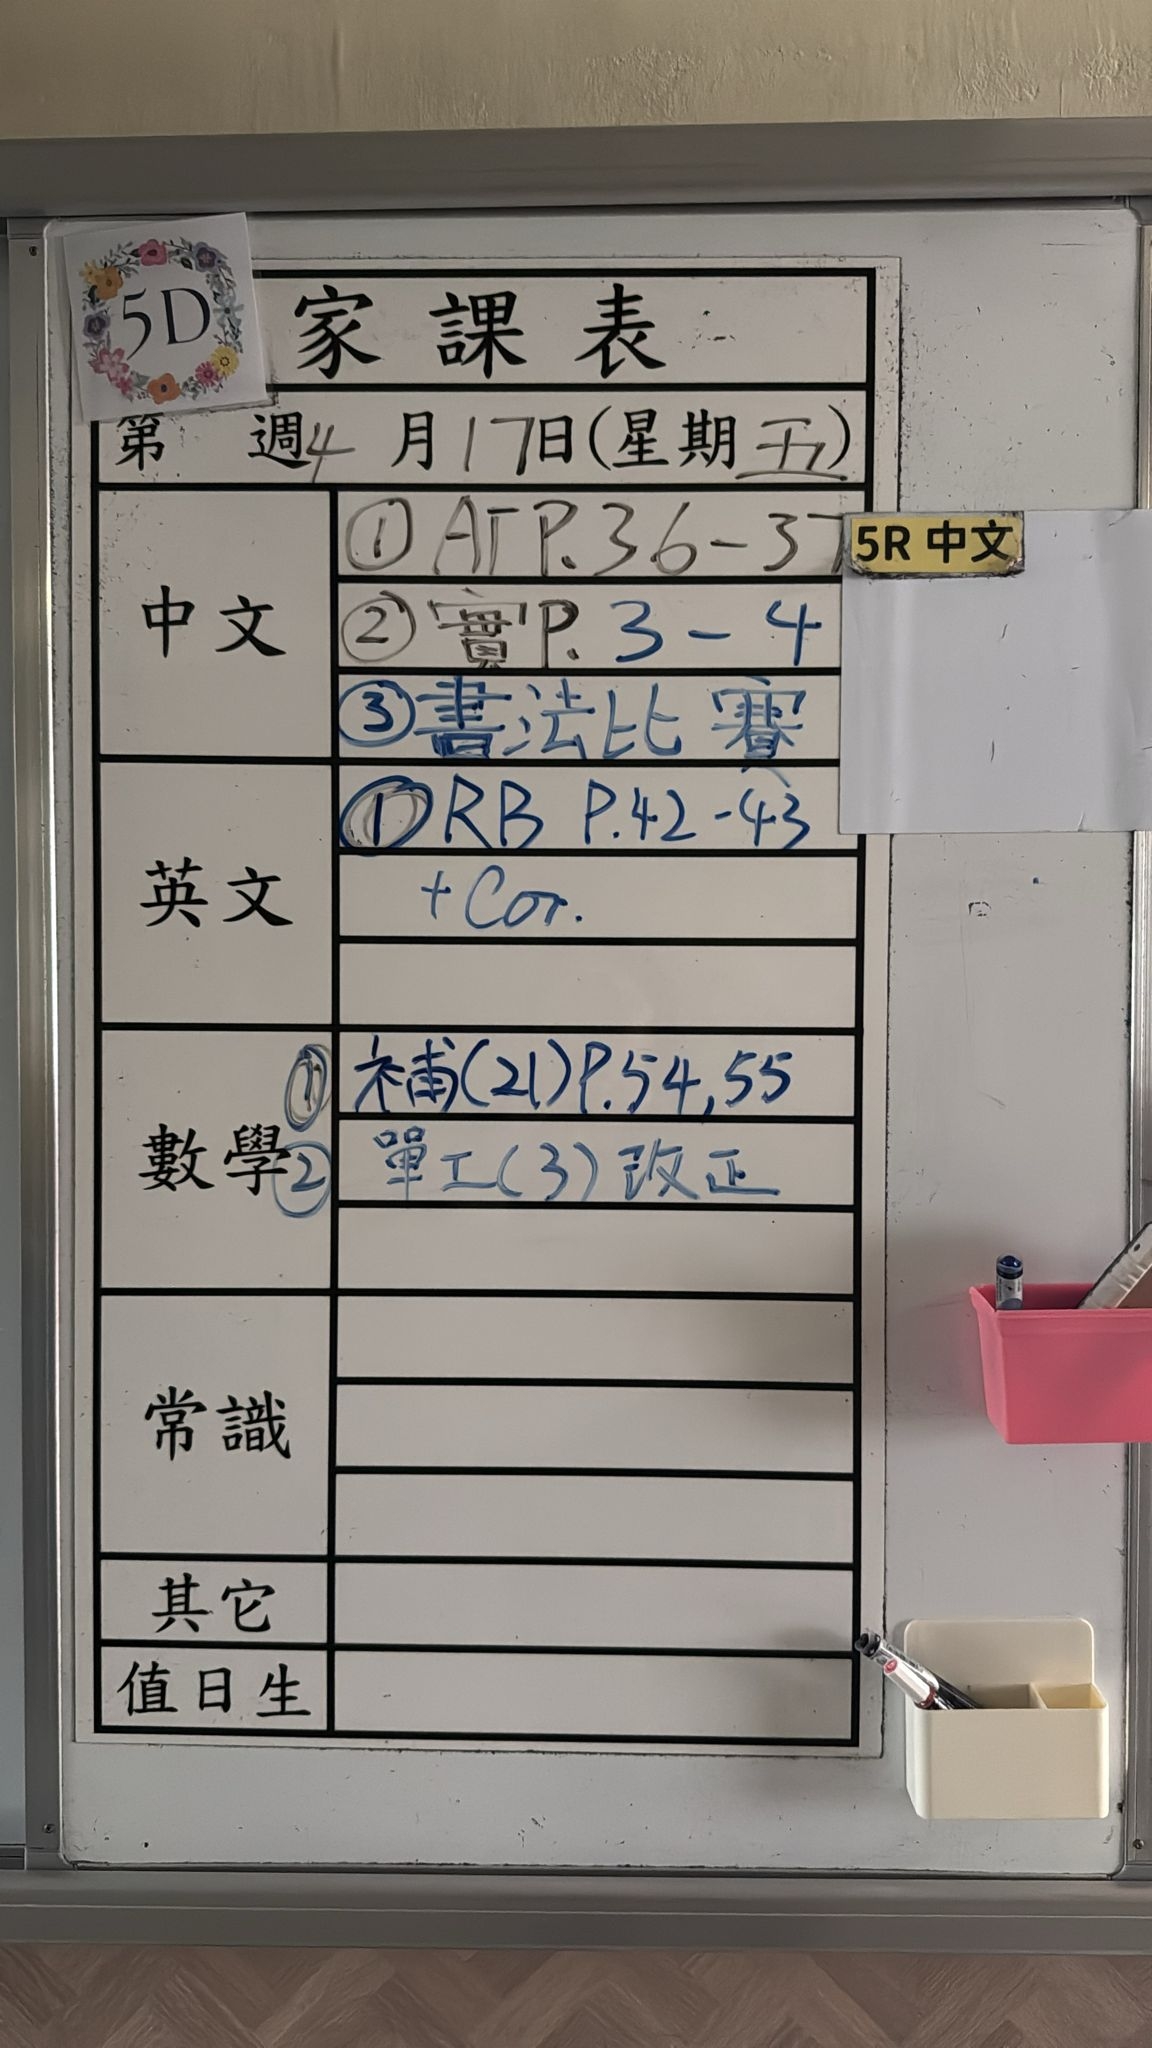 5D
家課表
第 週 4月17日(星期五)
中文
① AT P.36-37
② 實 P. 3-4
③ 書法比賽
5R 中文
英文
① RB P.42-43
+Cor.
數學
① 補(21)P.54,55
② 單工(3)改正
常識
其它
值日生